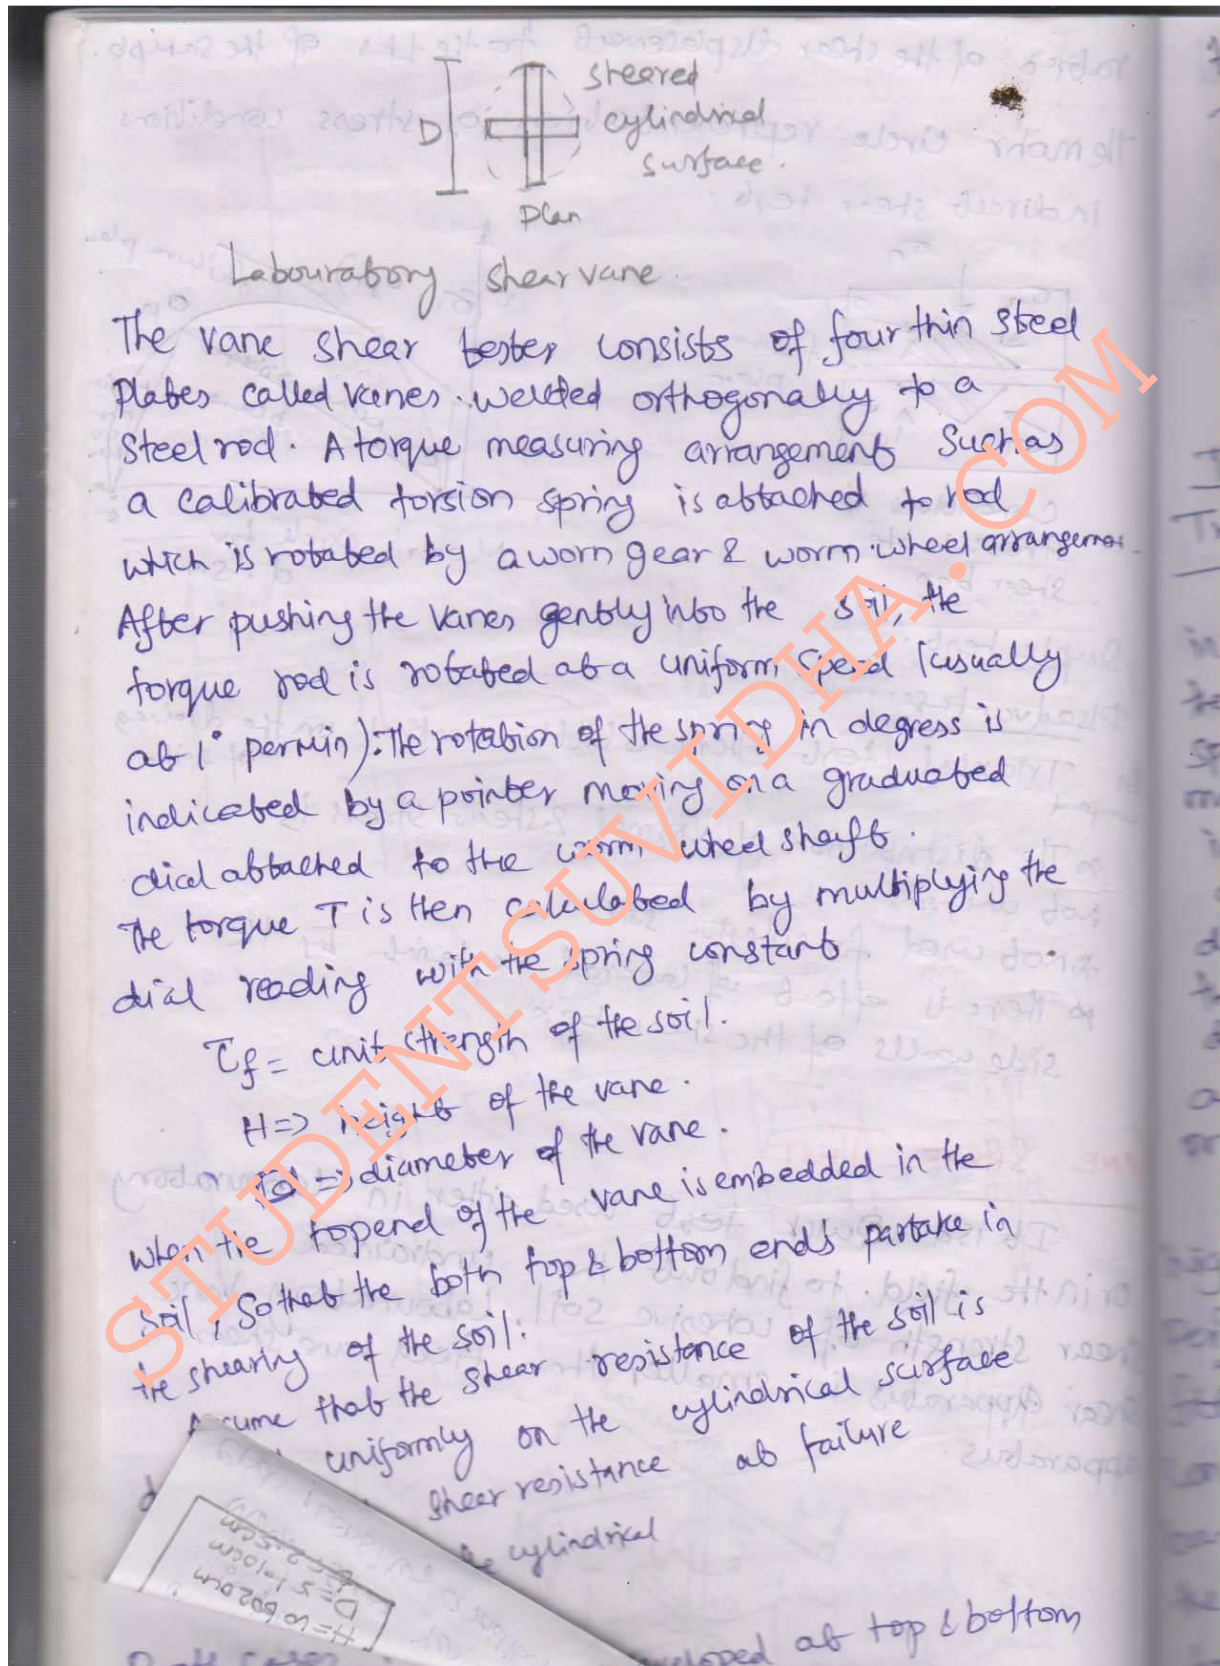 sheared
D
cylindrical
surface.
Plan
Labouratory shear vane.
The vane shear tester consists of four thin steel
plates called vanes. welded orthogonally to a
steel rod. A torque measuring arrangement such as
a calibrated torsion spring is attached to rod
which is rotated by a worn gear & worm wheel arrangement
After pushing the vanes gently into the soil, the
torque rod is rotated at a uniform speed (usually
at 1° per min). The rotation of the spring in degress is
indicated by a pointer moving on a graduated
dial attached to the worm wheel shaft.
The torque T is then calculated by multiplying the
dial reading with the spring constant
τf = unit strength of the soil.
H => height of the vane.
d => diameter of the vane.
when the top end of the vane is embedded in the
soil, so that the both top & bottom ends partake in
the shearing of the soil.
Assume that the shear resistance of the soil is
uniformly on the cylindrical surface
shear resistance at failure
cylindrical
at top & bottom
H = 10 to 20 cm
D = 5 t-10cm
2.5cm
STUDENTSUVIDHA.COM